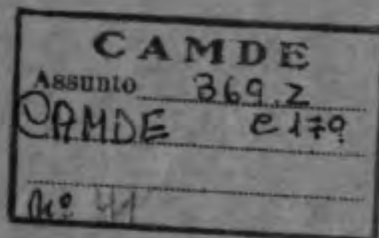 CAMDE
Assunto 369.2
CAMDE e179
Nº 41